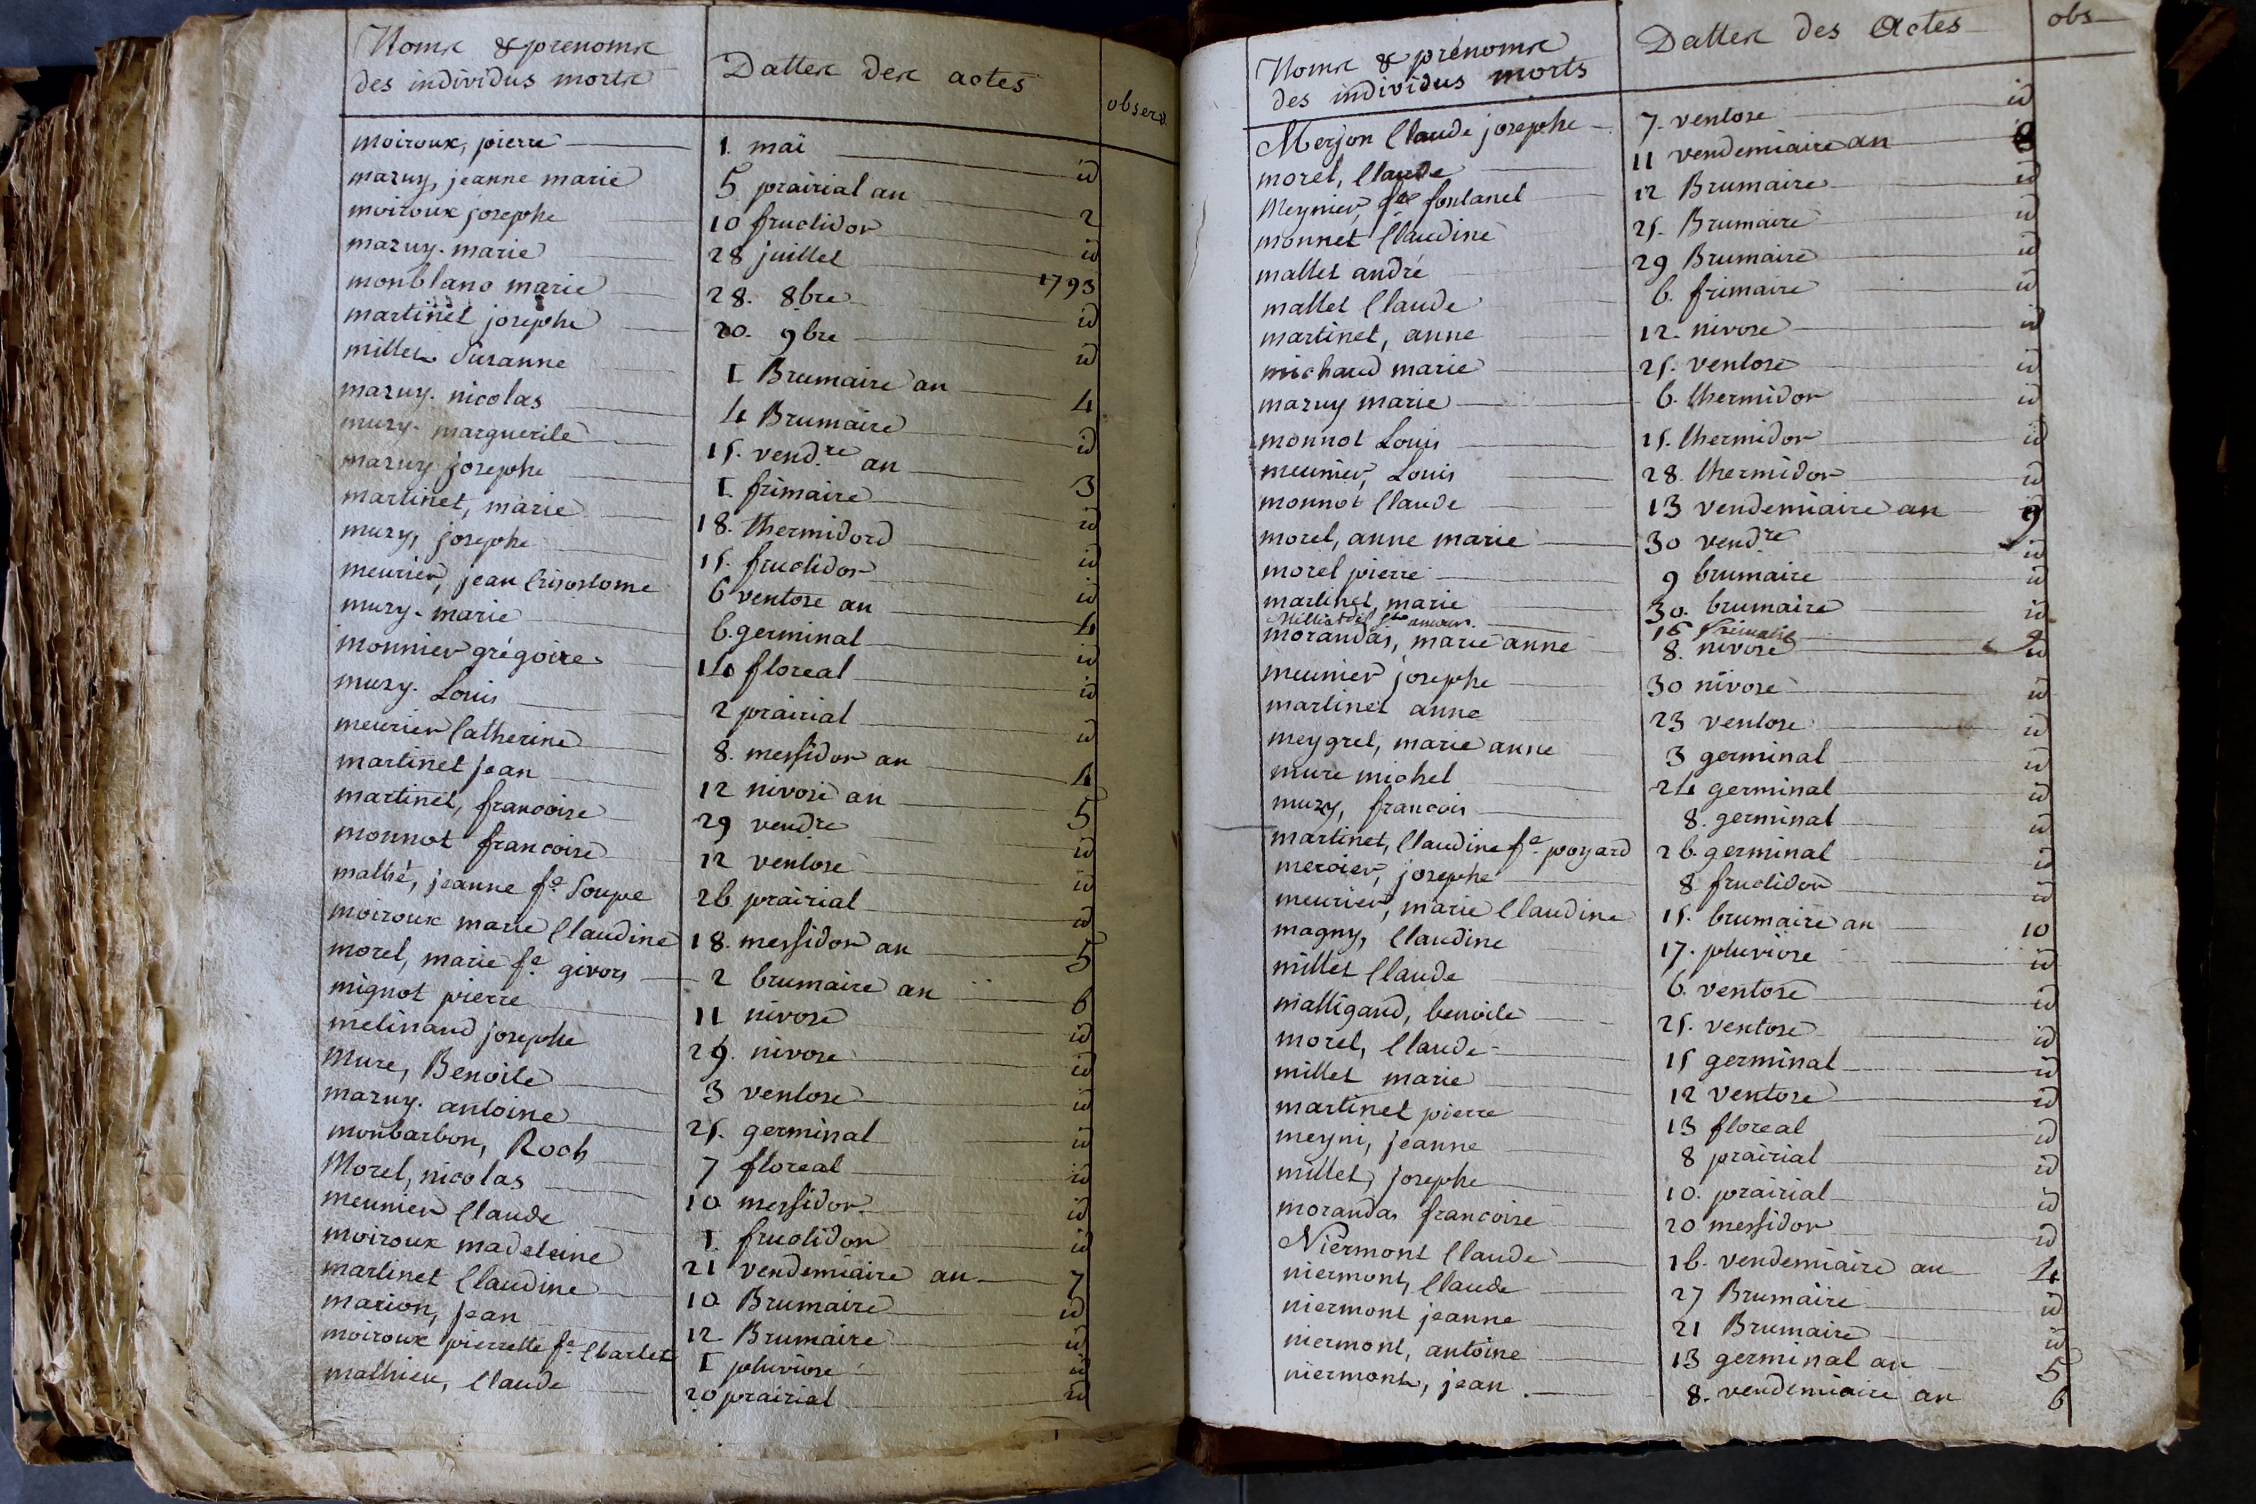 Noms & prenoms
des individus morts
Dattes des actes
observ.
moiroux, pierre 1. mai id
mazuy, jeanne marie 5 prairial an 2
moiroux josephe 10 fructidor id
mazuy. marie 28 juillet 1793
monblanc marie 28. 8bre id
martinet josephe 20. 9bre id
millet Suzanne 1 Brumaire an 4
mazuy. nicolas 4 Brumaire id
muzy. marguerite 15. vend.re an 3
mazuy josephe 1. frimaire id
martinet, marie 18. thermidord id
muzy, josephe 15. fructidor id
meurier, jean Crisostome 6 ventose an 4
muzy. marie 6. germinal id
monnier grégoire 14 floreal id
muzy. Louis 2 prairial id
meurier Catherine 8. messidor an 4
martinet jean 12 nivose an 5
martinet, francoise 29 vendre id
monnot francoise 12 ventose id
mathé, jeanne fe. Soupe 26 prairial id
moiroux marie Claudine 18. messidor an 5
morel, marie fe. givors 2 brumaire an 6
mignot pierre 11 nivose id
melinand josephe 29. nivose id
Mure, Benoite 3 ventose id
mazuy. antoine 25. germinal id
monbarbon, Roch 7 floreal id
Morel, nicolas 10 messidor. id
meunier Claude 1. fructidor id
moiroux madeleine 21 vendemiaire an 7
martinet Claudine 10 Brumaire id
marion, jean 12 Brumaire id
moiroux pierrette fe. Charlet 1 pluviose id
mathieu, Claude 20 prairial id
Noms & prénoms
des individus morts
Dattes des Actes
obs
Merjon Claude josephe 7. ventose id
morel, Claude 11 vendemiaire an 8
Meynier, fe fontanel 12 Brumaire id
monnet Claudine 25. Brumaire id
mallet andré 29 Brumaire id
mallet Claude 6. frimaire id
martinet, anne 12. nivose id
michaud marie 25. ventose id
mazuy marie 6. thermidor id
monnot Louis 15. thermidor id
meunier, Louis 28. thermidor id
monnot Claude 13 vendemiaire an 9
morel, anne marie 30 vendre id
morel pierre 9 brumaire id
martinet, marie 30. brumaire id
16 frimaire
morandas, marie anne 8. nivose id
meunier josephe 30 nivose id
martinet anne 23 ventose id
meygret, marie anne 3 germinal id
mure michel 24 germinal id
muzy, francois 8. germinal id
martinet, Claudine fe. poyard 26. germinal id
mercier, josephe 8 fructidor id
meurier, marie Claudine 15. brumaire an 10
magny, Claudine 17. pluviose id
millet Claude 6. ventose id
malligand, benoite 25. ventose id
morel, Claude 15 germinal id
millet marie 12 ventose id
martinet pierre 13 floreal id
meyni, jeanne 8 prairial id
millet, josephe 10. prairial id
morandas francoise 20 messidor id
Niermont Claude 16. vendemiaire an 4
niermont, Claude 27 Brumaire id
niermont jeanne 21 Brumaire id
niermont, antoine 13 germinal an 5
niermont, jean 8. vendemiaire an 6